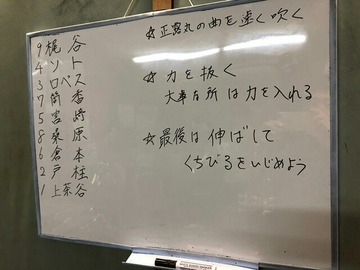 9 梶谷
4 ソト
3 ロペス
7 筒香
5 宮﨑
8 桑原
6 倉本
2 戸柱
1 上茶谷
☆正露丸の曲を速く吹く
☆力を抜く
大事な所は力を入れる
☆最後は伸ばして
くちびるをいじめよう